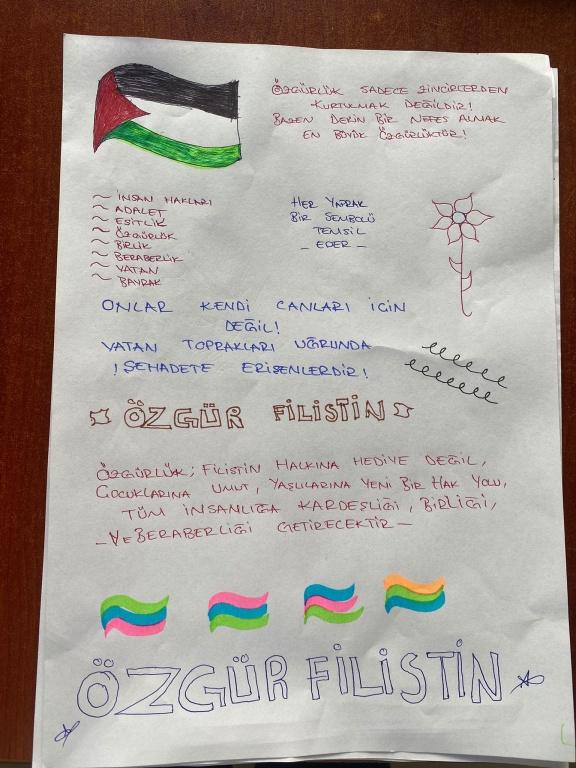 ÖZGÜRLÜK SADECE ZİNCİRLERDEN
KURTULMAK DEĞİLDİR!
BAZEN DERİN BİR NEFES ALMAK
EN BÜYÜK ÖZGÜRLÜKTÜR!
~ İNSAN HAKLARI
~ ADALET
~ EŞİTLİK
~ ÖZGÜRLÜK
~ BİRLİK
~ BERABERLİK
~ VATAN
~ BAYRAK
HER YAPRAK
BİR SEMBOLÜ
TEMSİL
- EDER -
ONLAR KENDİ CANLARI İÇİN
DEĞİL!
VATAN TOPRAKLARI UĞRUNDA
! ŞEHADETE ERİŞENLERDİR!
ÖZGÜR FİLİSTİN
ÖZGÜRLÜK; FİLİSTİN HALKINA HEDİYE DEĞİL,
ÇOCUKLARINA UMUT, YAŞLILARINA YENİ BİR HAK YOLU,
TÜM İNSANLIĞA KARDEŞLİĞİ, BİRLİĞİ,
- VE BERABERLİĞİ GETİRECEKTİR -
ÖZGÜR FİLİSTİN